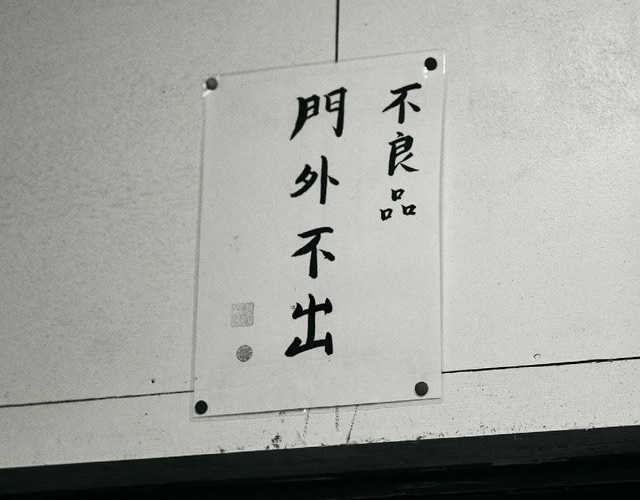 不良品
門外不出